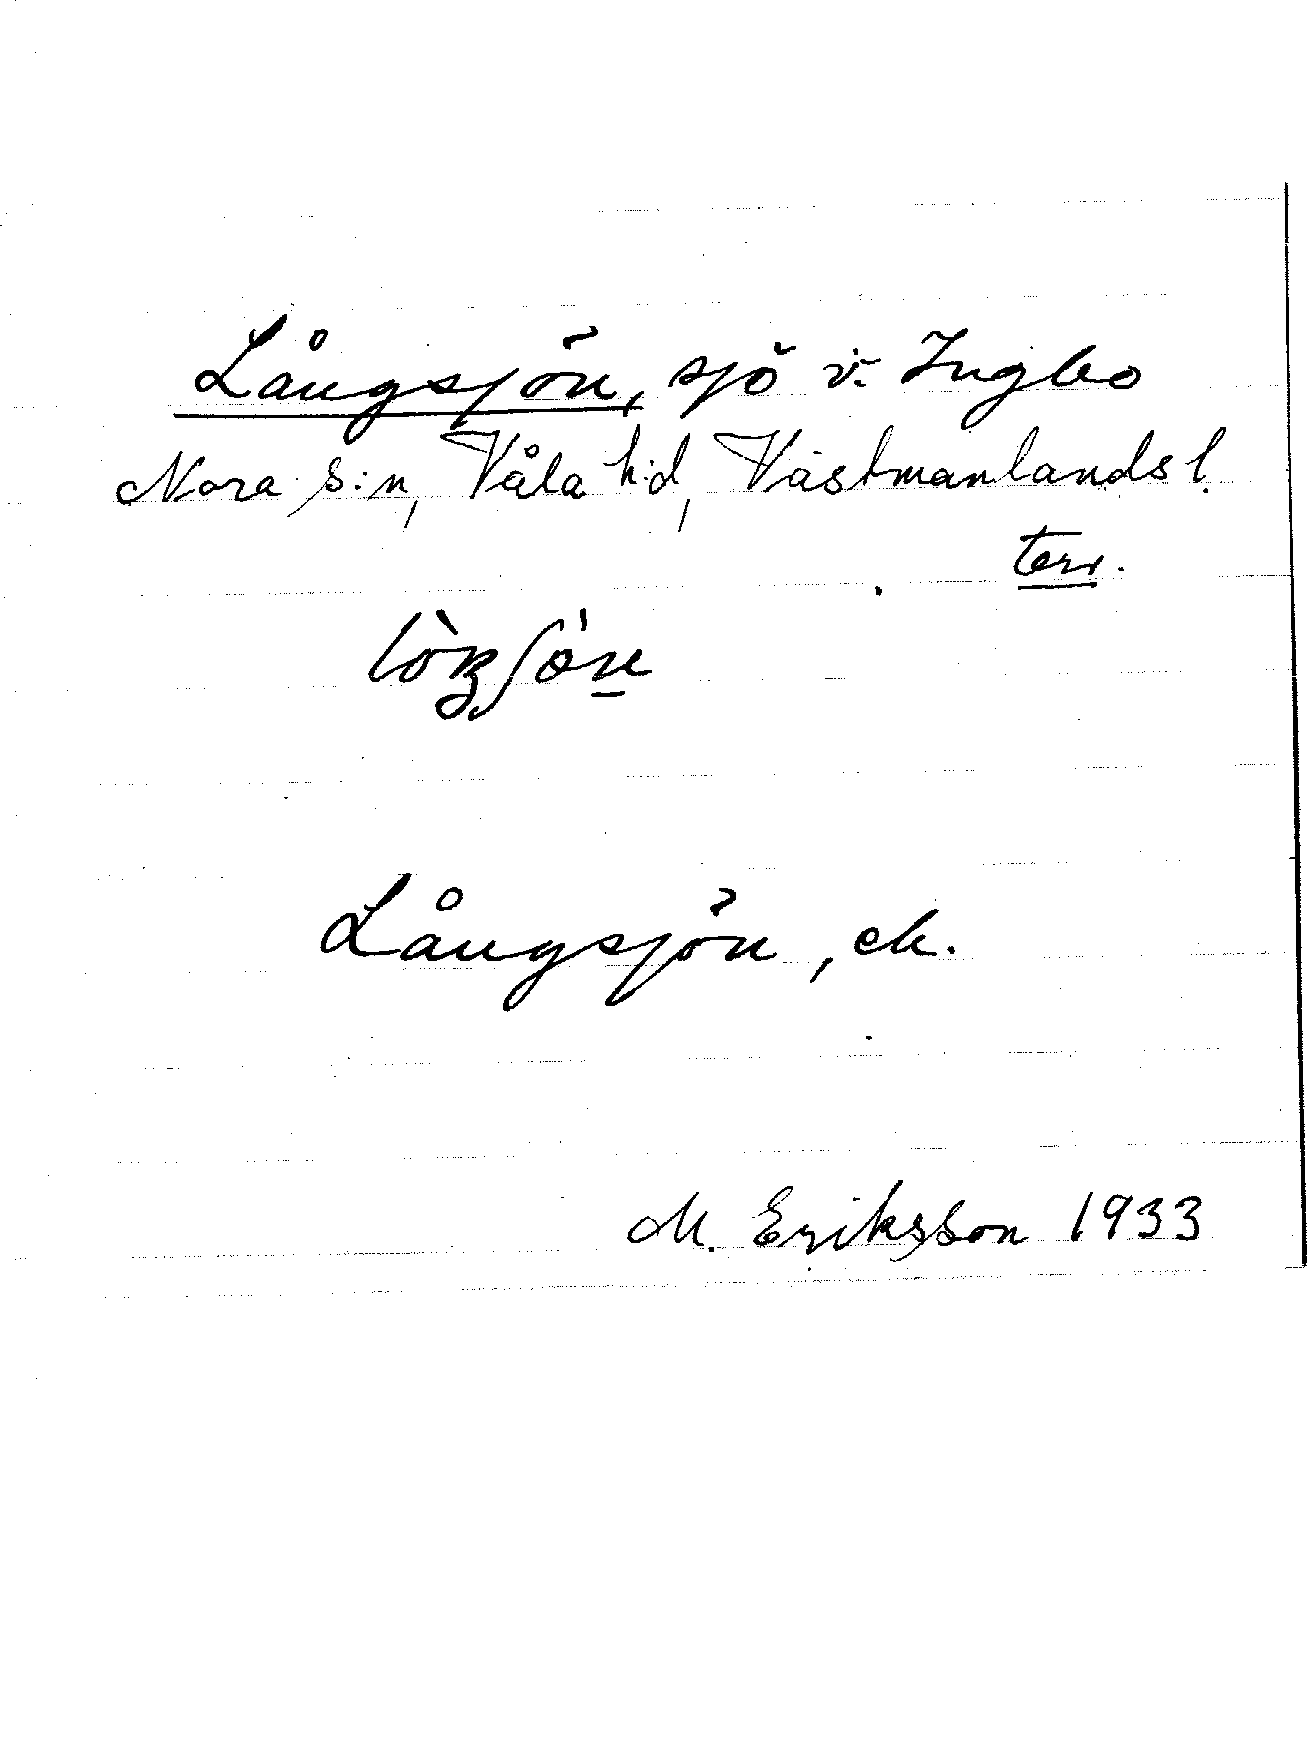 Långsjön, sjö v. Ingbo
Nora s:n, Våla h:d, Västmanlands l.
terr.
Långsjön, ek.
M. Eriksson 1933